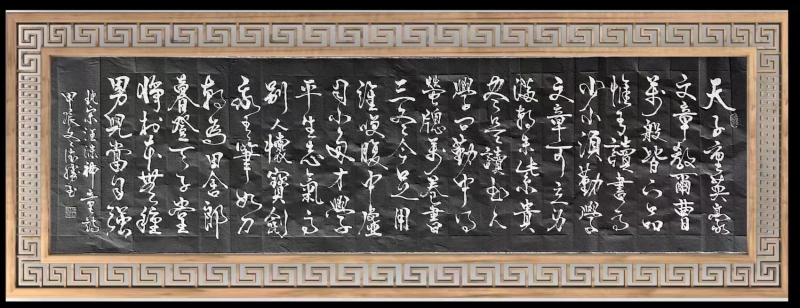 天子重英豪
文章教爾曹
萬般皆下品
惟有讀書高
少小須勤學
文章可立身
滿朝朱紫貴
盡是讀書人
學問勤中得
螢牕萬卷書
三冬今足用
誰笑腹中虛
自小多才學
平生志氣高
別人懷寶劍
我有筆如刀
朝為田舍郎
暮登天子堂
將相本無種
男兒當自強
錄宋汪洙神童詩
甲辰